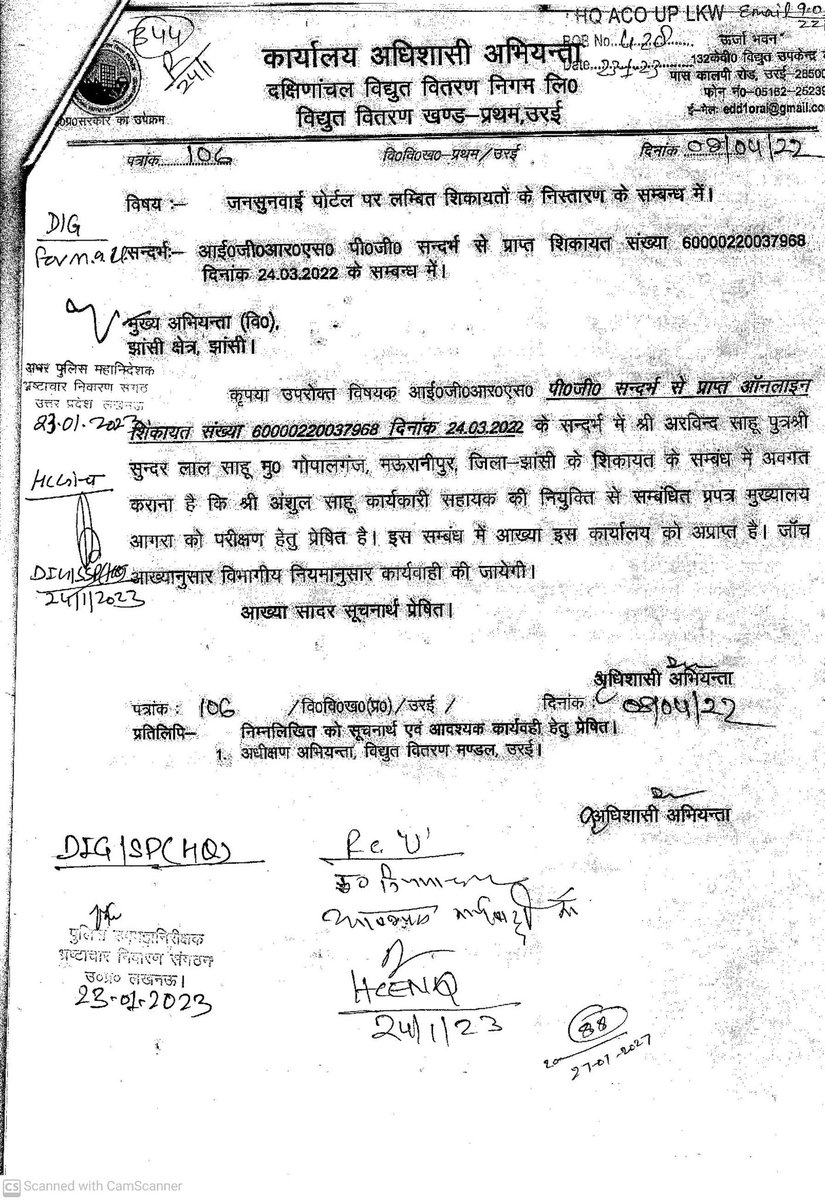 344
24/1
HQ ACO UP LKW Email
कार्यालय अधिशासी अभियन्ता
दक्षिणांचल विद्युत वितरण निगम लि०
विद्युत वितरण खण्ड–प्रथम,उरई
ऊर्जा भवन
132केवी० विद्युत उपकेन्द्र
पास कालपी रोड, उरई
फोन न०-05162-25239
ई–मेलः edd1orai@gmail.co
उ०प्र०सरकार का उपक्रम
पत्रांक 106 वि०वि०ख०–प्रथम/उरई दिनांक 08/04/22
विषय :– जनसुनवाई पोर्टल पर लम्बित शिकायतों के निस्तारण के सम्बन्ध में।
DIG
सन्दर्भः– आई०जी०आर०एस० पी०जी० सन्दर्भ से प्राप्त शिकायत संख्या 60000220037968
दिनांक 24.03.2022 के सम्बन्ध में।
मुख्य अभियन्ता (वि०),
झांसी क्षेत्र, झांसी।
अपर पुलिस महानिदेशक
भ्रष्टाचार निवारण संगठन
उत्तर प्रदेश लखनऊ
23-01-2023
कृपया उपरोक्त विषयक आई०जी०आर०एस० पी०जी० सन्दर्भ से प्राप्त ऑनलाइन
शिकायत संख्या 60000220037968 दिनांक 24.03.2022 के सन्दर्भ में श्री अरविन्द साहू पुत्रश्री
सुन्दर लाल साहू मु० गोपालगंज, मऊरानीपुर, जिला–झांसी के शिकायत के संबंध में अवगत
कराना है कि श्री अंशुल साहू कार्यकारी सहायक की नियुक्ति से सम्बंधित प्रपत्र मुख्यालय
आगरा को परीक्षण हेतु प्रेषित है। इस सम्बंध में आख्या इस कार्यालय को अप्राप्त है। जॉच
आख्यानुसार विभागीय नियमानुसार कार्यवाही की जायेगी।
DIG/SSP/HQ
24/1/2023
आख्या सादर सूचनार्थ प्रेषित।
अधिशासी अभियन्ता
पत्रांक : 106 /वि०वि०ख०(प्र०)/उरई / दिनांक : 08/04/22
प्रतिलिपि– निम्नलिखित को सूचनार्थ एवं आवश्यक कार्यवही हेतु प्रेषित।
1. अधीक्षण अभियन्ता, विद्युत वितरण मण्डल, उरई।
अधिशासी अभियन्ता
DIG/SP(HQ)
पुलिस उपमहानिरीक्षक
भ्रष्टाचार निवारण संगठन
उ०प्र० लखनऊ।
23-01-2023
Re 'U'
HCENQ
24/1/23
88
Scanned with CamScanner